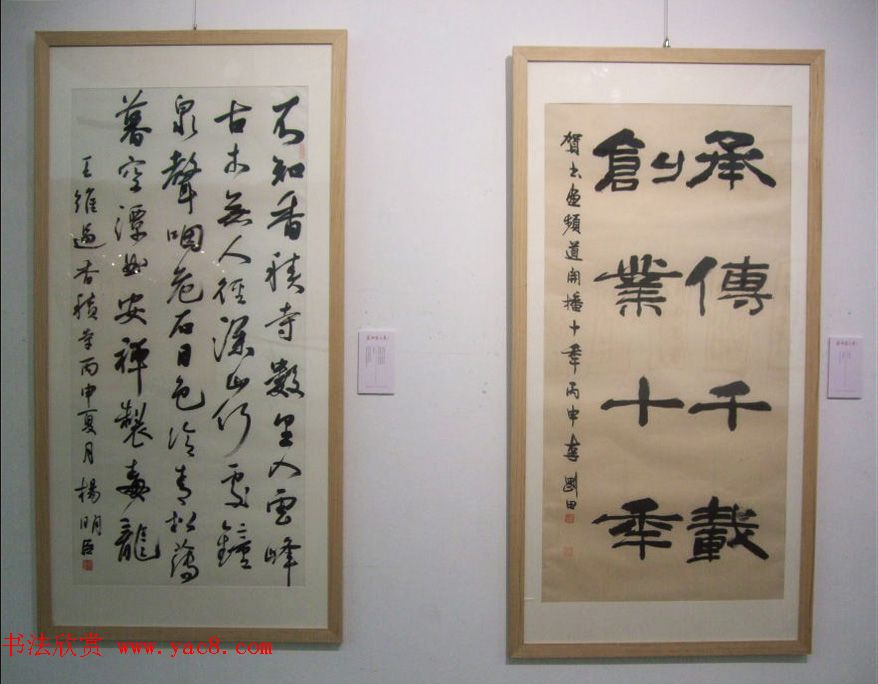 不知香積寺數里入雲峰
古木無人徑深山何處鐘
泉聲咽危石日色冷青松薄
暮空潭曲安禪製毒龍
王維過香積寺丙申夏月楊明臣
承傳千載
創業十秊
賀書畫頻道開播十秊丙申
书法欣赏 www.yac8.com